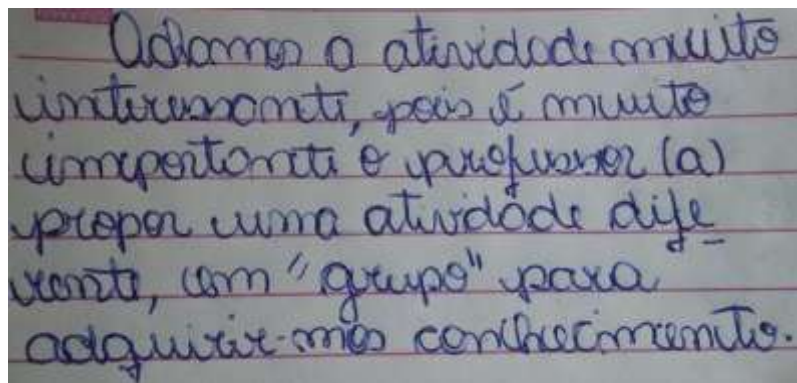 Achamos a atividade muito
interessante, pois é muito
importante o professor (a)
propor uma atividade dife
rente, com "grupo" para
adquirir-mos conhecimento.